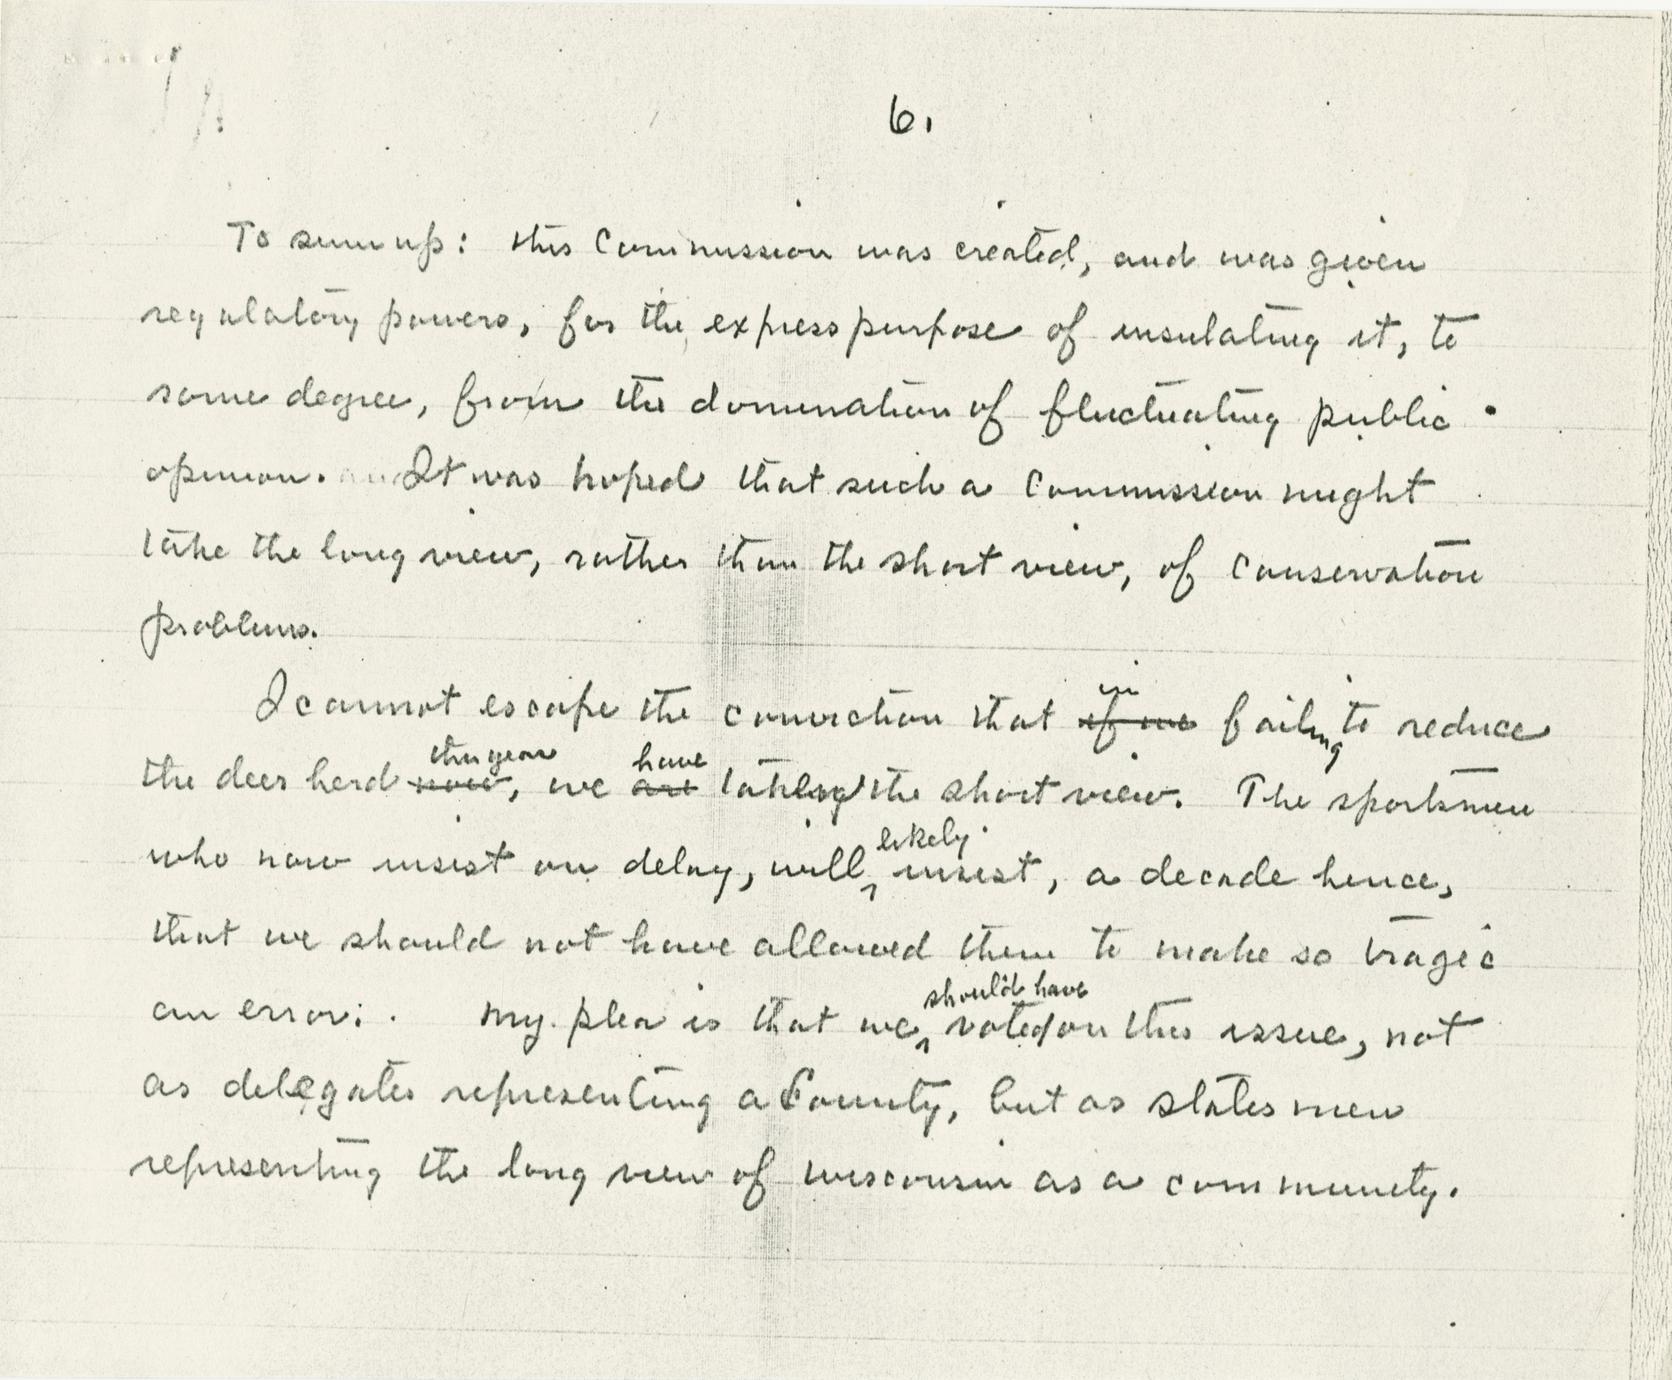 6.
To sum up: this Commission was created, and was given
regulatory powers, for the express purpose of insulating it, to
some degree, from the domination of fluctuating public
opinion. It was hoped that such a Commission might
take the long view, rather than the short view, of conservation
problems.
I cannot escape the conviction that if we in failing to reduce
the deer herd now this year, we are have taken the short view. The sportsmen
who now insist on delay, will likely insist, a decade hence,
that we should not have allowed them to make so tragic
an error. My plea is that we should have voted on this issue, not
as delegates representing a County, but as statesmen
representing the long view of Wisconsin as a community.